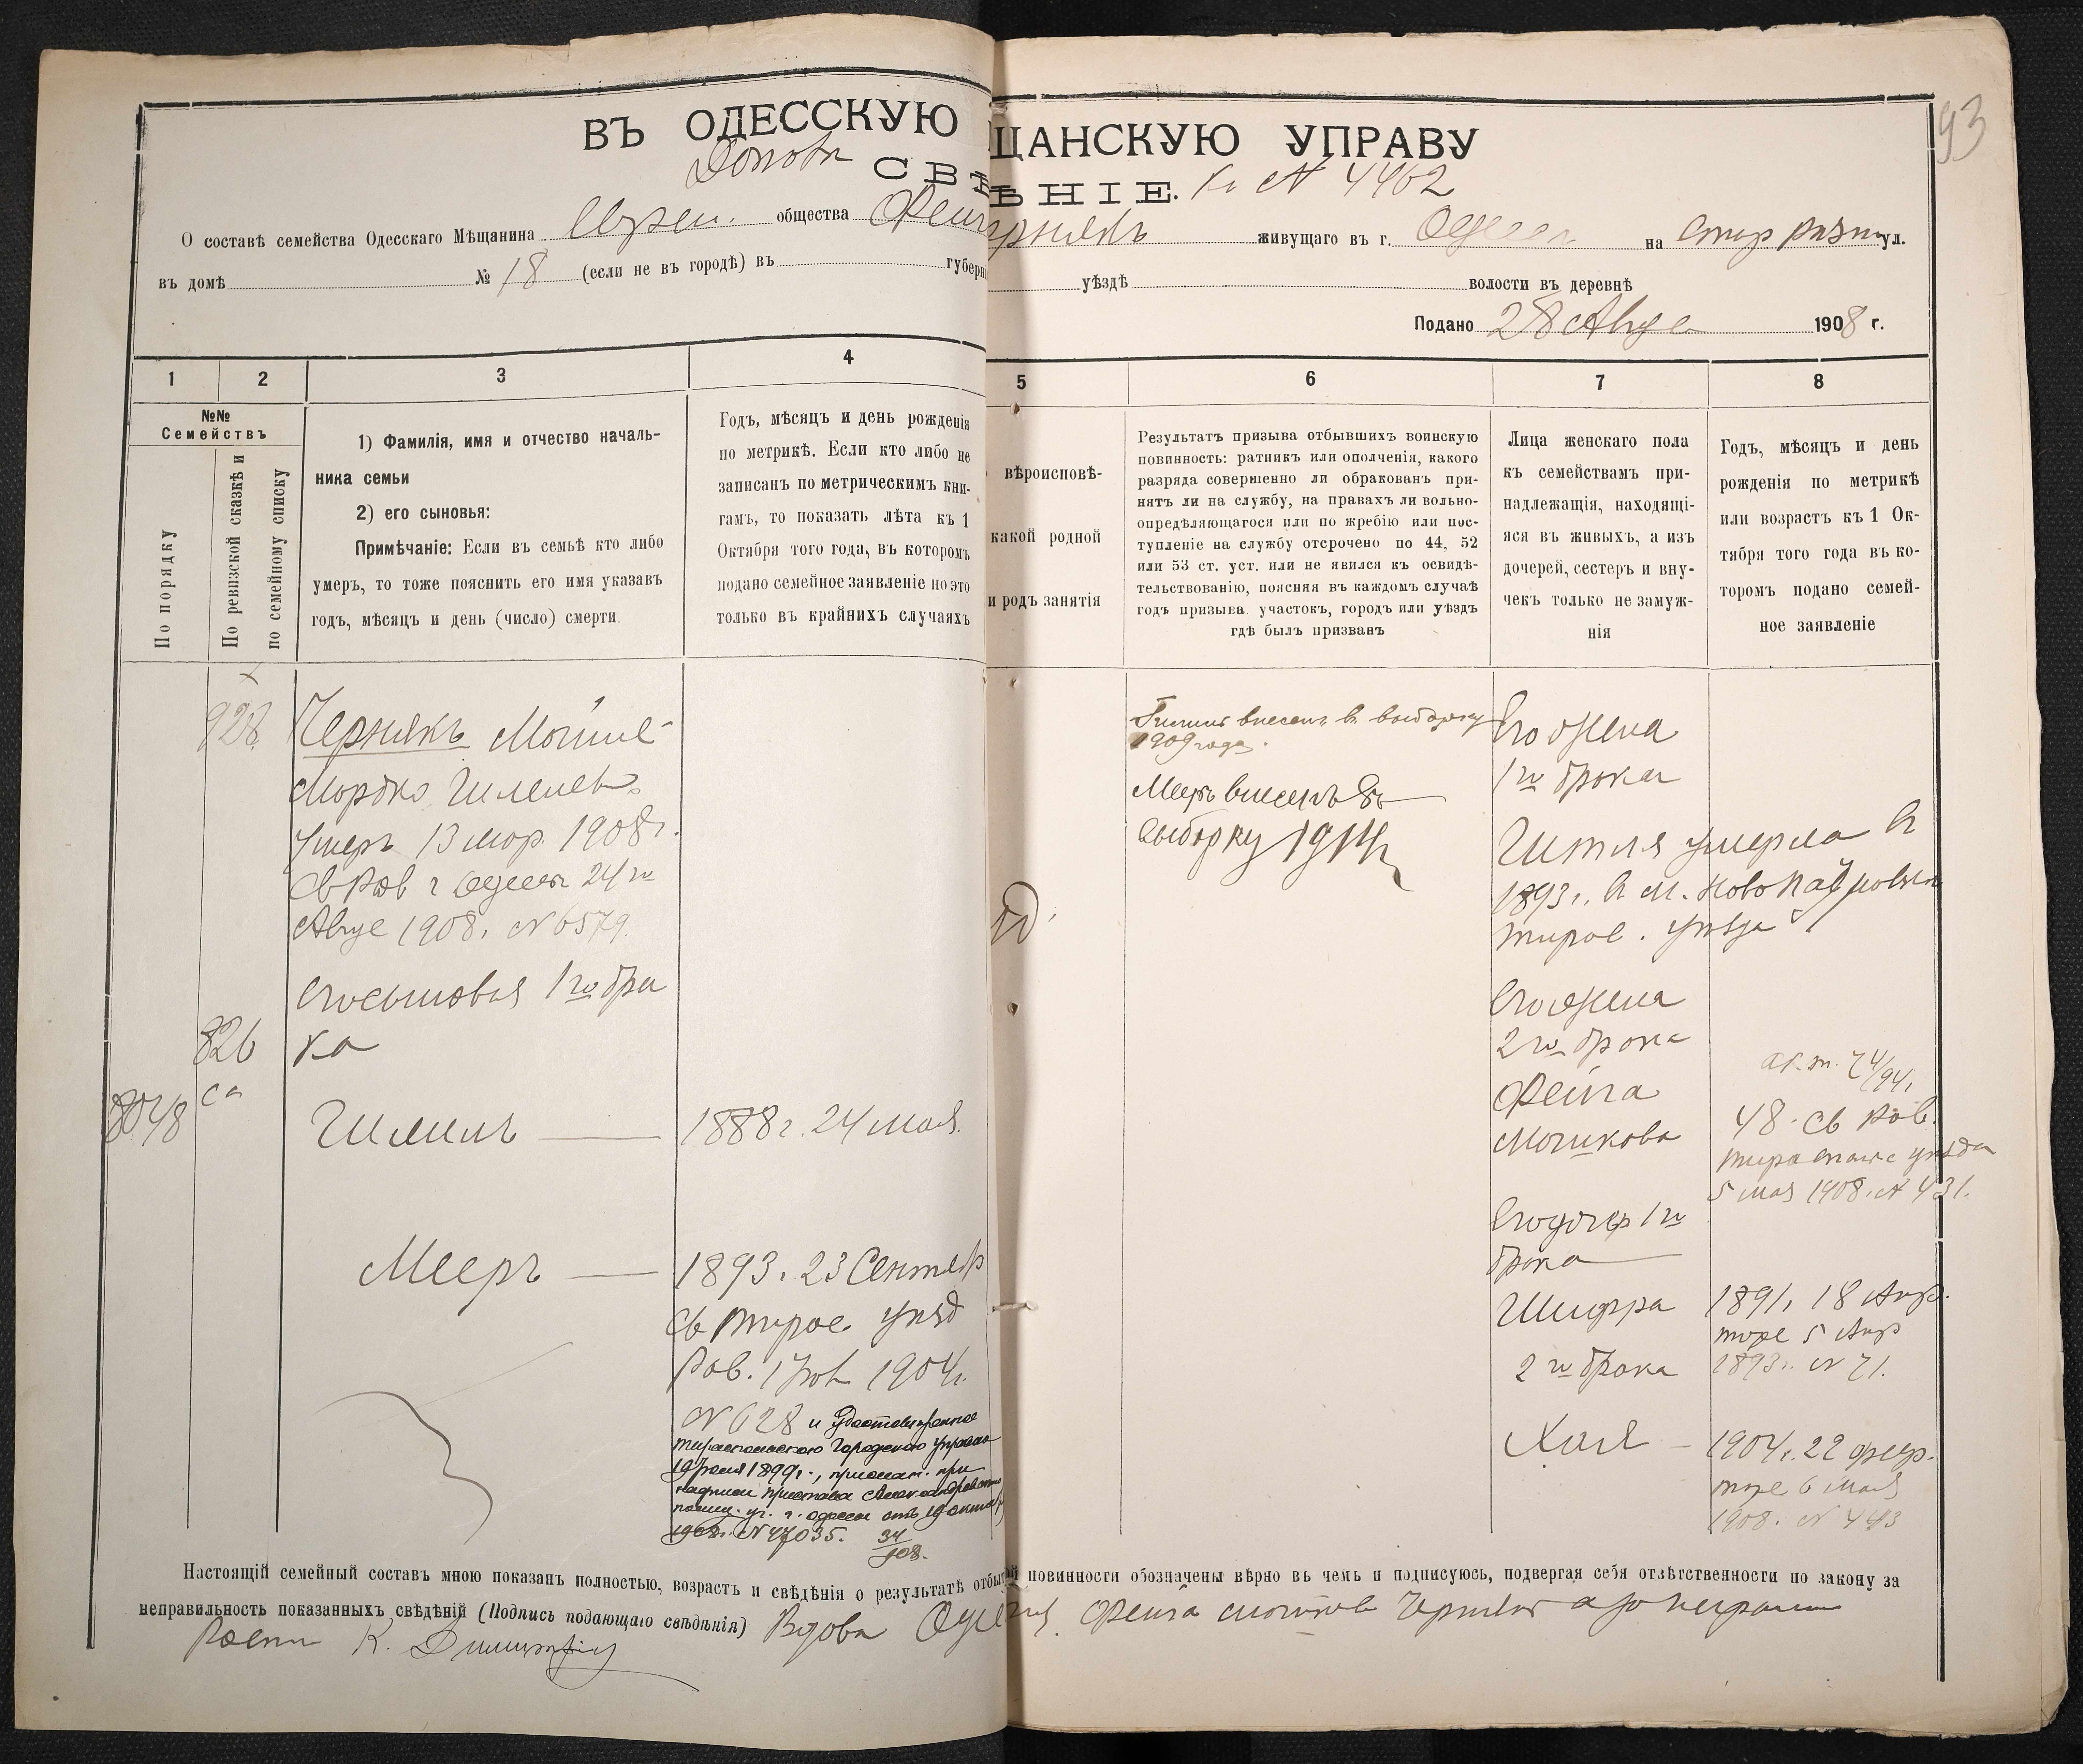 93
ВЪ ОДЕССКУЮ ЩАНСКУЮ УПРАВУ
СВѢ ѢНІЕ. К № 4462
О составѣ семейства Одесскаго Мѣщанина Евреи. общества Фейг ерникъ живущаго въ г. Одесса на ул.
въ домѣ № 18 (если не въ городѣ) въ губерн уѣздѣ волости въ деревнѣ
Подано 28 Авгус 1908 г.
1 2 3 4 5 6 7 8
№№
Семействъ
По порядку
По ревизской сказкѣ и
по семейному списку
1) Фамилія, имя и отчество началь-
ника семьи
2) его сыновья:
Примѣчаніе: Если въ семьѣ кто либо
умеръ, то тоже пояснить его имя указавъ
годъ, мѣсяцъ и день (число) смерти
Годъ, мѣсяцъ и день рожденія
по метрикѣ. Если кто либо не
записанъ по метрическимъ кни-
гамъ, то показать лѣта къ 1
Октября того года, въ которомъ
подано семейное заявленіе но это
только въ крайнихъ случаяхъ
вѣроисповѣ-
какой родной
и родъ занятія
Результатъ призыва отбывшихъ воинскую
повинность: ратникъ или ополченія, какого
разряда совершенно ли обракованъ при-
нятъ ли на службу, на правахъ ли вольно-
опредѣляющагося или по жребію или пос-
тупленіе на службу отсрочено по 44, 52
или 53 ст. уст. или не явился къ освидѣ-
тельствованію, поясняя въ каждомъ случаѣ
годъ призыва участокъ, городъ или уѣздъ
гдѣ былъ призванъ
Лица женскаго пола
къ семействамъ при-
надлежащія, находящі-
яся въ живыхъ, а изъ
дочерей, сестеръ и вну-
чекъ только не замуж-
нія
Годъ, мѣсяцъ и день
рожденія по метрикѣ
или возрастъ къ 1 Ок-
тября того года въ ко-
торомъ подано семей-
ное заявленіе
928. Чернякъ Мойше-
Мордко Гилелев.
Умеръ 13 мар. 1908 г.
Св Рав г Одессы 24 го
Авгус 1908. № 6579.
Его сыновья 1 го бра
826 ка
са
8048 Гилель — 1888 г. 24 мая.
Мееръ — 1893. 23 Сентяб
Св Тирас. уѣзд
Рав. 1904 г.
№ 628 и удостовѣренное
Тираспольскою Городскою управою
1899 г., при
надписи пристава Александровскаго
полиц. уч. г. Одессы отъ 19 октяб
1908 г. № 47035. 34/908.
Гилель внесенъ въ выборку
1909 года.
Мееръ внесенъ въ
выборку 1914 г
Его жена
1 го брака
Гитля умерла в
1893 г. в м. Ново
Тирас. уѣзда
Его жена
2 го брака
Фейга
Мошкова
74/94.
48. Св Рав.
Тираспольс уѣзда
5 мая 1908. № 431.
Его дочер 1 го
брака
Шифра 1891. 18 Апр.
5 Апр
1893 г. № 71.
2 го брака
Хая — 1904 г. 22 фев.
6 Мая
1908. № 443
Настоящій семейный составъ мною показанъ полностью, возрастъ и свѣдѣнія о результатѣ отбы й повинности обозначены вѣрно въ чемъ и подписуюсь, подвергая себя отвѣтственности по закону за
неправильность показанныхъ свѣдѣній (Подпись подающаго свѣдѣнія) Вдова Фейга Мошкова Чернякъ а за неграмот